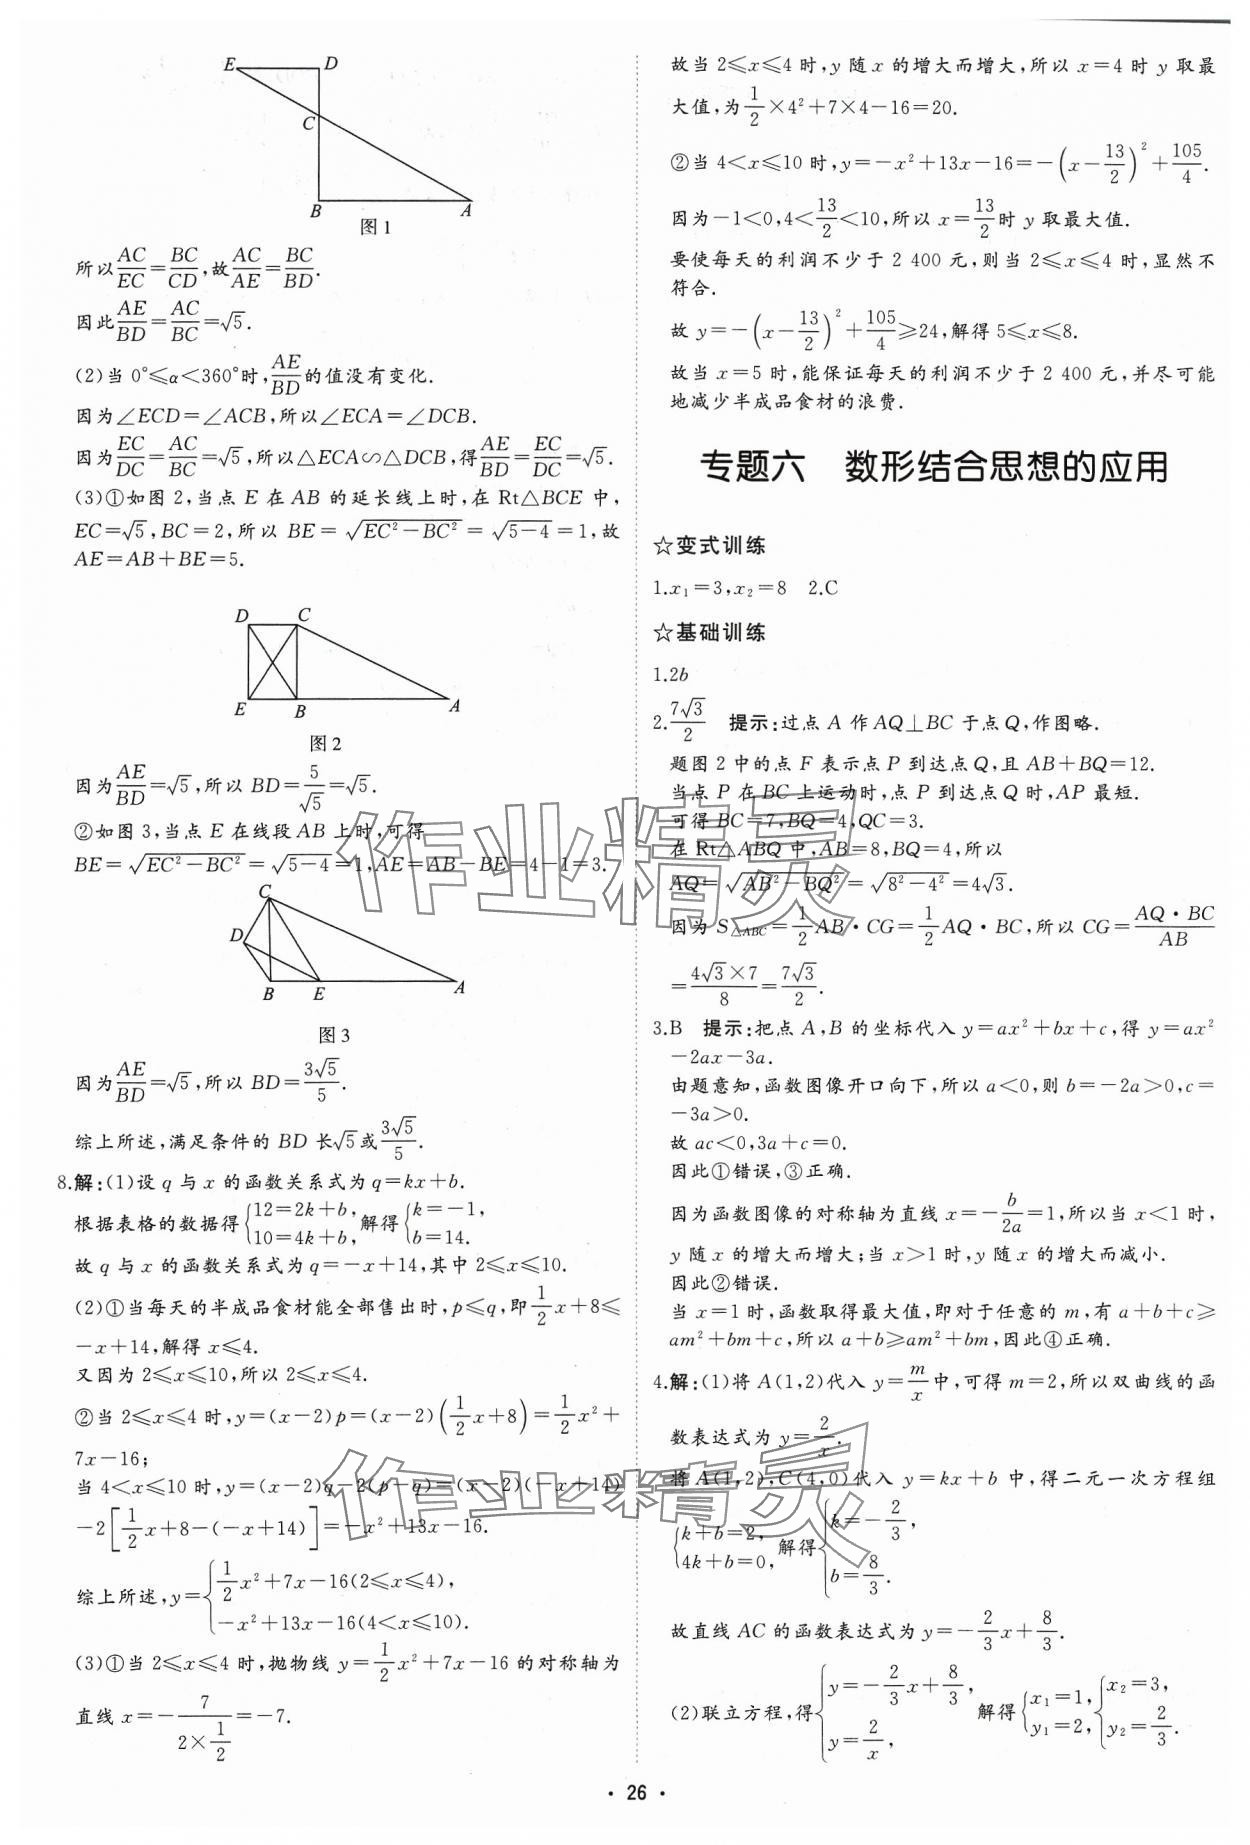 E D
C
B A
图1
所以AC/EC=BC/CD,故AC/AE=BC/BD.
因此AE/BD=AC/BC=√5.
(2)当 0°≤α<360°时,AE/BD的值没有变化.
因为∠ECD=∠ACB,所以∠ECA=∠DCB.
因为EC/DC=AC/BC=√5,所以△ECA∽△DCB,得AE/BD=EC/DC=√5.
(3)①如图 2,当点 E 在 AB 的延长线上时,在 Rt△BCE 中,
EC=√5,BC=2,所以 BE=√(EC²-BC²)=√(5-4)=1,故
AE=AB+BE=5.
D C
E B A
图2
因为AE/BD=√5,所以 BD=5/√5=√5.
②如图 3,当点 E 在线段 AB 上时,可得
BE=√(EC²-BC²)=√(5-4)=1,AE=AB-BE=4-1=3.
C
D
B E A
图3
因为AE/BD=√5,所以 BD=3√5/5.
综上所述,满足条件的 BD 长√5或3√5/5.
8.解:(1)设 q 与 x 的函数关系式为 q=kx+b.
根据表格的数据得{12=2k+b, 10=4k+b, 解得{k=-1, b=14.
故 q 与 x 的函数关系式为 q=-x+14,其中 2≤x≤10.
(2)①当每天的半成品食材能全部售出时,p≤q,即1/2x+8≤
-x+14,解得 x≤4.
又因为 2≤x≤10,所以 2≤x≤4.
②当 2≤x≤4 时,y=(x-2)p=(x-2)(1/2x+8)=1/2x²+
7x-16;
当 4<x≤10 时,y=(x-2)q-2(p-q)=(x-2)(-x+14)
-2[1/2x+8-(-x+14)]=-x²+13x-16.
综上所述,y={1/2x²+7x-16(2≤x≤4), -x²+13x-16(4<x≤10).
(3)①当 2≤x≤4 时,抛物线 y=1/2x²+7x-16 的对称轴为
直线 x=-7/(2×1/2)=-7.
故当 2≤x≤4 时,y 随 x 的增大而增大,所以 x=4 时 y 取最
大值,为1/2×4²+7×4-16=20.
②当 4<x≤10 时,y=-x²+13x-16=-(x-13/2)²+105/4.
因为-1<0,4<13/2<10,所以 x=13/2时 y 取最大值.
要使每天的利润不少于 2 400 元,则当 2≤x≤4 时,显然不
符合.
故 y=-(x-13/2)²+105/4≥24,解得 5≤x≤8.
故当 x=5 时,能保证每天的利润不少于 2 400 元,并尽可能
地减少半成品食材的浪费.
专题六 数形结合思想的应用
☆变式训练
1.x₁=3,x₂=8 2.C
☆基础训练
1.2b
2.7√3/2 提示:过点 A 作 AQ⊥BC 于点 Q,作图略.
题图 2 中的点 F 表示点 P 到达点 Q,且 AB+BQ=12.
当点 P 在 BC 上运动时,点 P 到达点 Q 时,AP 最短.
可得 BC=7,BQ=4,QC=3.
在 Rt△ABQ 中,AB=8,BQ=4,所以
AQ=√(AB²-BQ²)=√(8²-4²)=4√3.
因为 S△ABC=1/2AB·CG=1/2AQ·BC,所以 CG=AQ·BC/AB
=4√3×7/8=7√3/2.
3.B 提示:把点 A,B 的坐标代入 y=ax²+bx+c,得 y=ax²
-2ax-3a.
由题意知,函数图像开口向下,所以 a<0,则 b=-2a>0,c=
-3a>0.
故 ac<0,3a+c=0.
因此①错误,③正确.
因为函数图像的对称轴为直线 x=-b/2a=1,所以当 x<1 时,
y 随 x 的增大而增大;当 x>1 时,y 随 x 的增大而减小.
因此②错误.
当 x=1 时,函数取得最大值,即对于任意的 m,有 a+b+c≥
am²+bm+c,所以 a+b≥am²+bm,因此④正确.
4.解:(1)将 A(1,2)代入 y=m/x中,可得 m=2,所以双曲线的函
数表达式为 y=2/x.
将 A(1,2),C(4,0)代入 y=kx+b 中,得二元一次方程组
{k+b=2, 4k+b=0, 解得{k=-2/3, b=8/3.
故直线 AC 的函数表达式为 y=-2/3x+8/3.
(2)联立方程,得{y=-2/3x+8/3, y=2/x, 解得{x₁=1, y₁=2, {x₂=3, y₂=2/3.
· 26 ·
作业精灵
作业精灵